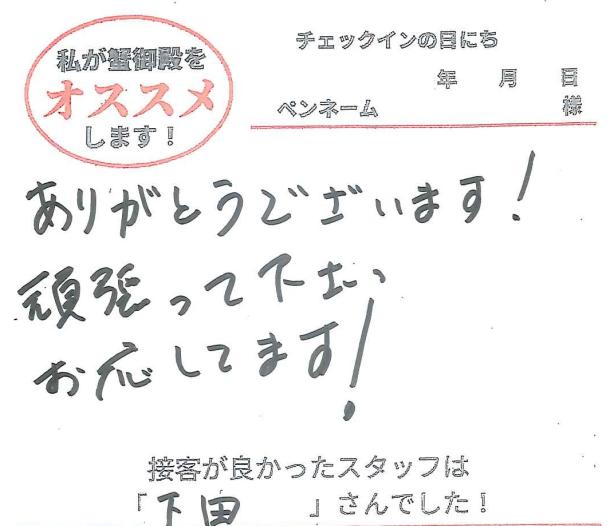 私が蟹御殿を
オススメ
します！
チェックインの日にち
年 月 日
ペンネーム 様
ありがとうございます！
頑張って下さい
お応してます！
接客が良かったスタッフは
「下田 」さんでした！